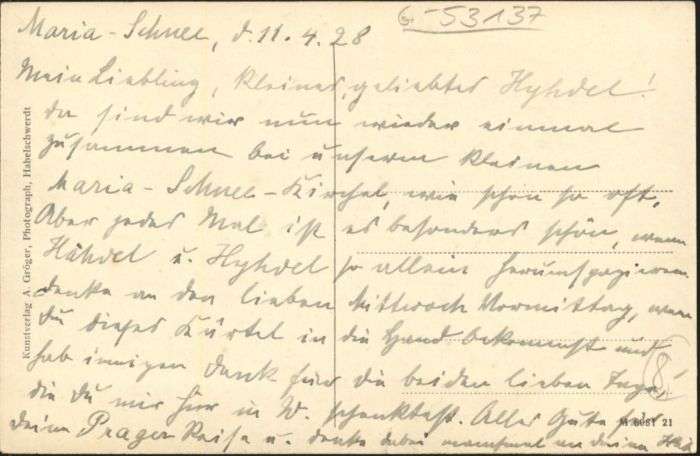 G-53137
Maria-Schnee, d. 11. 4. 28
Mein Liebling, kleines, geliebtes Hyhdel!
da sind wir nun wieder einmal
zusammen bei unserm kleinen
Maria-Schnee-Kirchel, wie schon so oft,
Aber jedes Mal ist es besonders schön, wenn
Hahdel u. Hyhdel so allein herumspazieren
denke an den lieben Mittwoch Vormittag, wenn
du dieses Kärtel in die Hand bekommst und
hab innigen Dank für die beiden lieben Tage,
die du mir hier in W. schenktest. Alles Gute für
deine Prager Reise u. denke dabei manchmal an deine
Kunstverlag A. Gröger, Photograph, Habelschwerdt
21